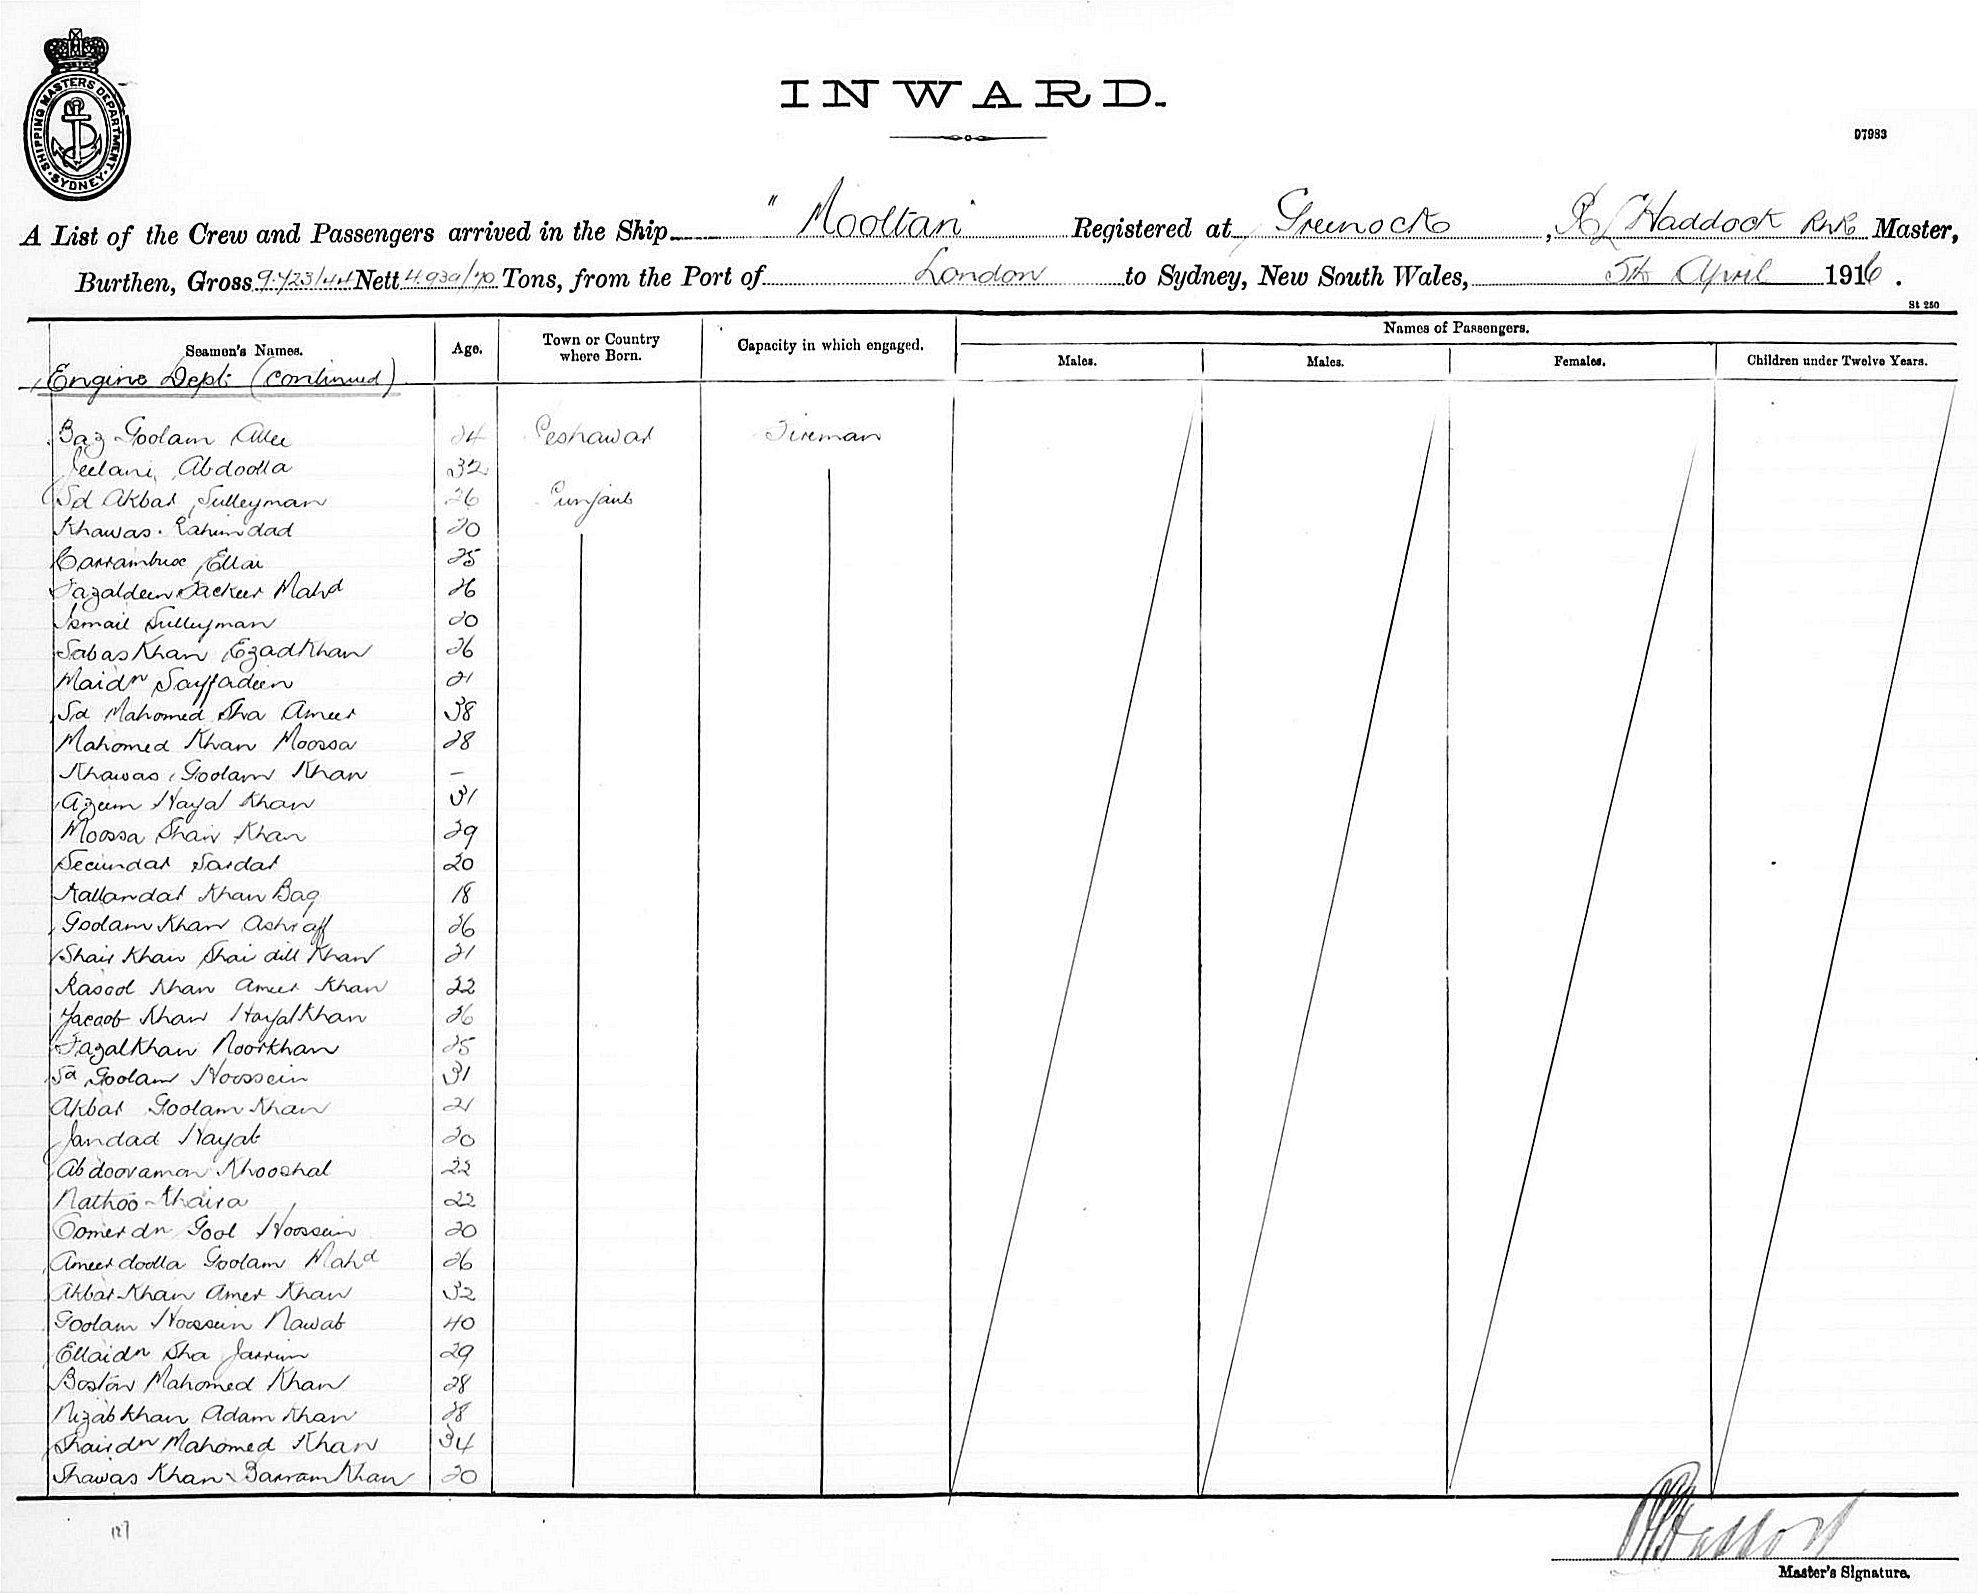 SHIPPING MASTERS DEPARTMENT · SYDNEY ·
INWARD.
D7983
A List of the Crew and Passengers arrived in the Ship "Mooltan" Registered at Greenock, Haddock RNR Master,
Burthen, Gross 9.723/44 Nett 4.939/70 Tons, from the Port of London to Sydney, New South Wales, 5th April 1916.
St 250
Seamen's Names. Age. Town or Country where Born. Capacity in which engaged. Names of Passengers.
Males. Males. Females. Children under Twelve Years.
Engine Dept (continued)
Baz Goolam Allee 24 Peshawar Fireman
Jeelani Abdoolla 32
Sd Akbar Sulleyman 26 Punjaub
Khawas Rahimdad 20
Carrambux Ellai 25
Fazaldeen Fackeer Mahd 26
Ismail Sulleyman 20
Sabas Khan Ezad Khan 26
Maidn Sayffadeen 21
Sd Mahomed Sha Ameer 38
Mahomed Khan Moossa 28
Khawas Goolam Khan —
Azeem Hayat Khan 31
Moossa Shair Khan 29
Secundar Sardar 20
Kallandar Khan Bag 18
Goolam Khan Ashraff 26
Shair Khan Shai dill Khan 21
Rasool Khan Ameer Khan 22
Yacoob Khan Hayat Khan 26
Fazal Khan Noor Khan 25
Sd Goolam Hoossein 31
Akbar Goolam Khan 21
Jandad Hayat 20
Abdooramon Khooshal 22
Nathoo Khaira 22
Oomerdn Gool Hoossein 20
Ameerdoolla Goolam Mahd 26
Akbar Khan Amer Khan 32
Goolam Hoossein Nawab 40
Ellaidn Sha Jarrim 29
Bostan Mahomed Khan 28
Nizab Khan Adam Khan 28
Shairdn Mahomed Khan 34
Khawas Khan Barram Khan 20
127
Haddock
Master's Signature.